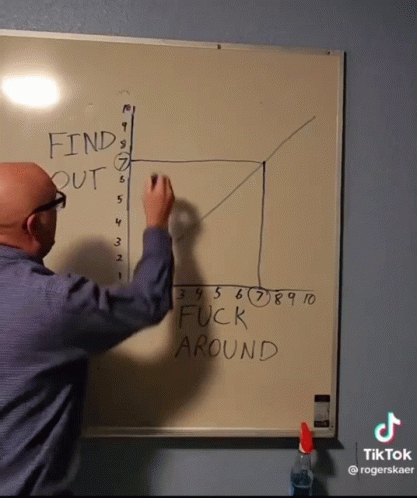 10
9
8
FIND
7
OUT
6
5
4
3
2
1
3 4 5 6 7 8 9 10
FUCK
AROUND
TikTok
@rogerskaer